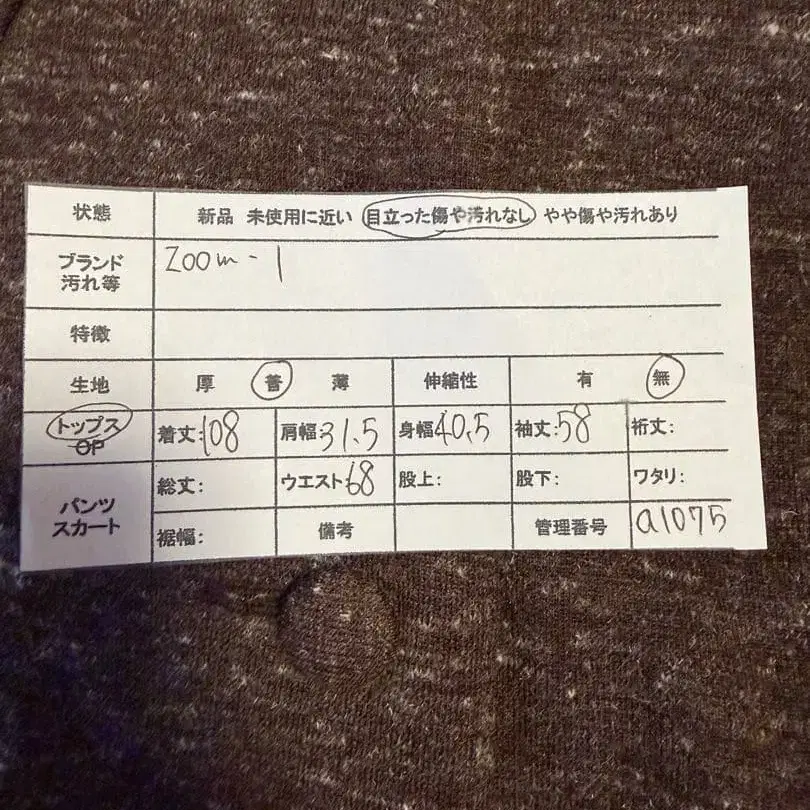 状態 新品 未使用に近い 目立った傷や汚れなし やや傷や汚れあり
ブランド
汚れ等
Zoom-1
特徴
生地 厚 普 薄 伸縮性 有 無
トップス
OP
着丈:108 肩幅31.5 身幅40.5 袖丈:58 裄丈:
パンツ
スカート
総丈: ウエスト68 股上: 股下: ワタリ:
裾幅: 備考 管理番号 a1075